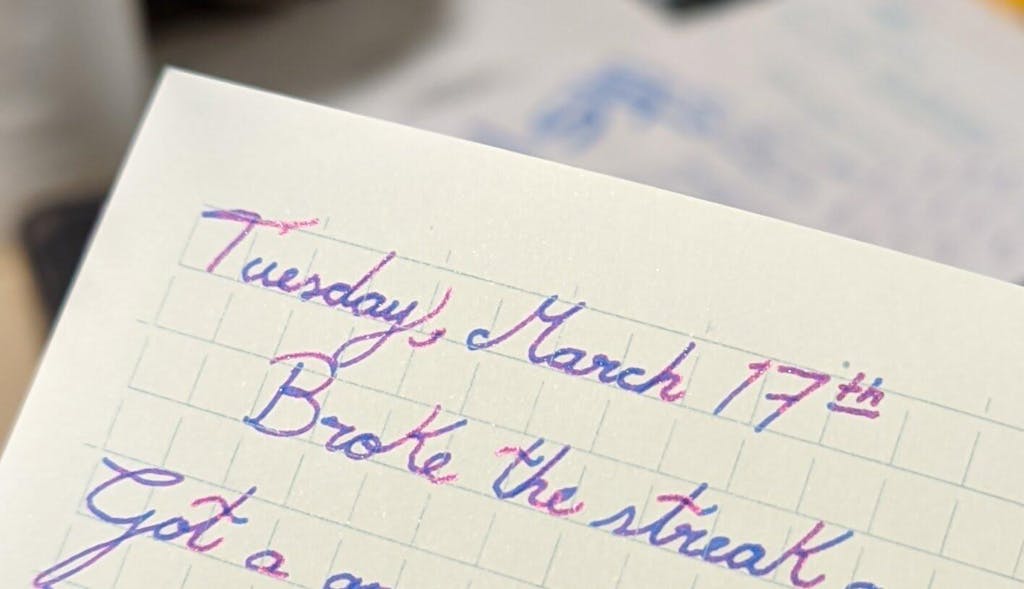 Tuesday, March 17th
Broke the streak
Got a